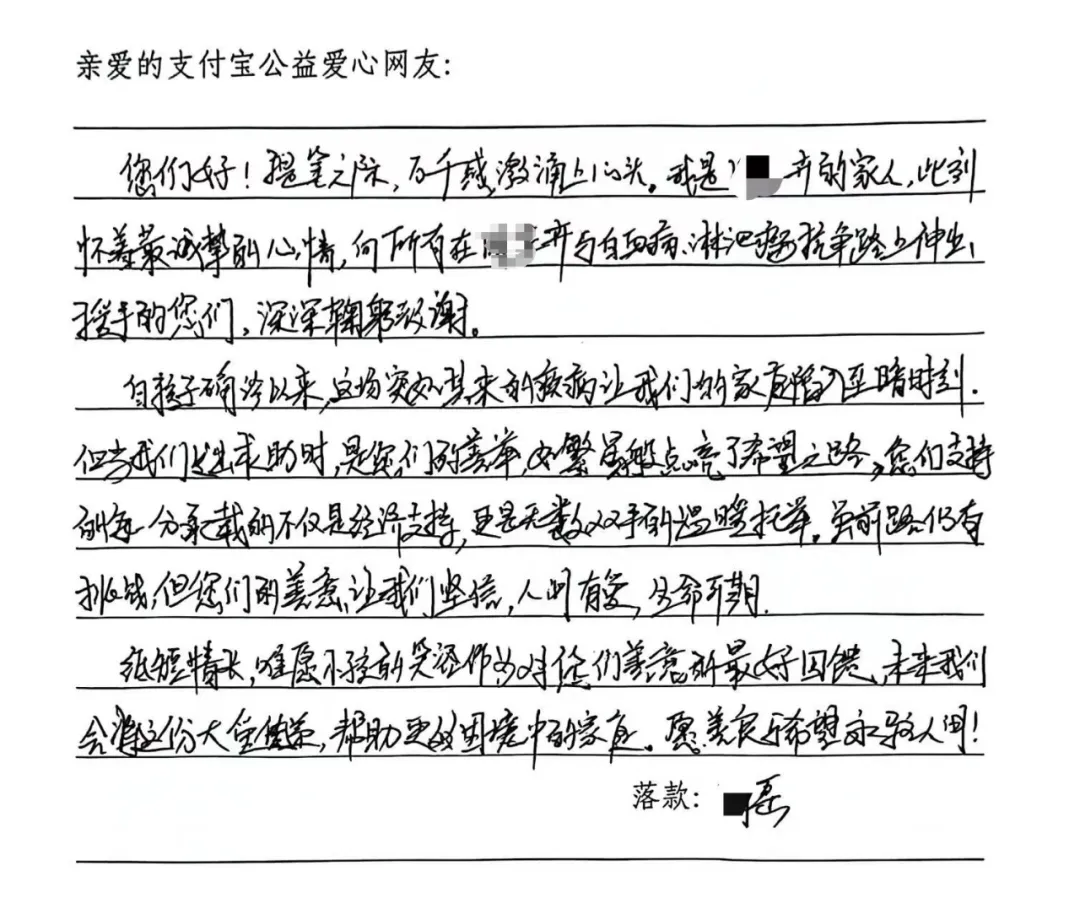 亲爱的支付宝公益爱心网友:
您们好!提笔之际,万千感激涌上心头。我是 弃的家人,此刻
怀着最诚挚的心情,向所有在 弃与白血病、淋巴瘤抗争路上伸出
援手的您们,深深鞠躬致谢。
自孩子确诊以来,这场突如其来的疾病让我们的家庭陷入至暗时刻.
但当我们发出求助时,是您们的善举,如繁星般点亮了希望之路,您们支持
的每一分承载的不仅是经济支持,更是无数双手的温暖托举。虽前路仍有
挑战,但您们的善意,让我们坚信,人间有爱,生命可期.
纸短情长,唯愿小孩的笑容作为对您们善意的最好回馈,未来我们
会将这份大爱传递,帮助更多困境中的家庭。愿善良与希望永驻人间!
落款: 磊